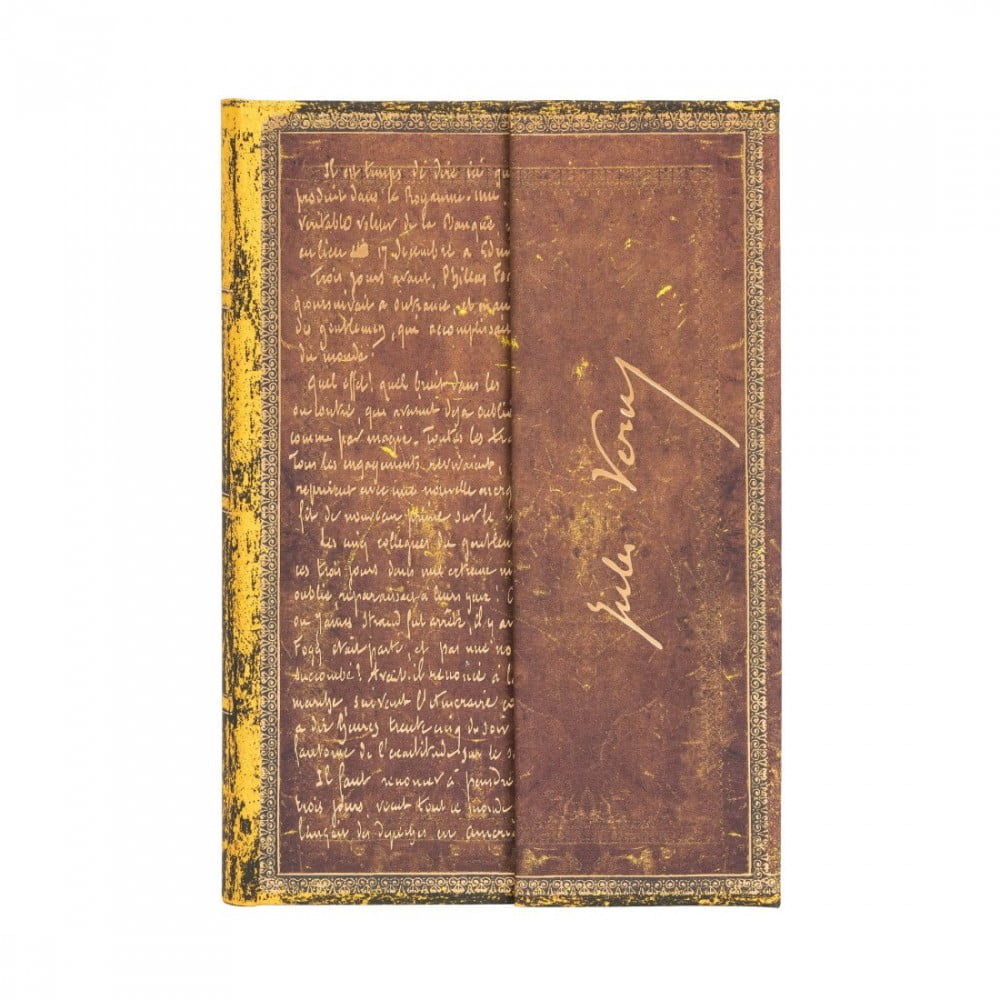 Il est temps de dire ici qu
produit dans le Royaume-Uni
veritable voleur de la Banque
eu lieu 17 Decembre a Edim
Trois jours avant, Phileas Fo
poursuivait a outrance, et main
du gentleman, qui accomplissai
du monde!
Quel effet! quel bruit dans les
ou contre, qui avaient deja oublié
comme par magie. Toutes les tra
Tous les engagements revivaient,
reprirent avec une nouvelle energ
fit de nouveau prime sur le
Les cinq collegues du gentlem
ces trois jours dans une extreme
oublié reparaissait à leurs yeux!
ou James Strand fut arrêté, il y av
Fogg était parti, et pas une no
succombé? Avait-il renoncé à l
marche, suivant l'itineraire co
a dix heures trente cinq du soir
fantome de l'exactitude sur le s
Il faut renoncer à peindre
trois jours, vécut tout ce monde
lançait des depeches en ameri
Jules Verne